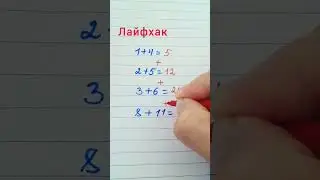 Лайфхак
1+4=5
+
2+5=12
+
3+6=2
+
8+11=